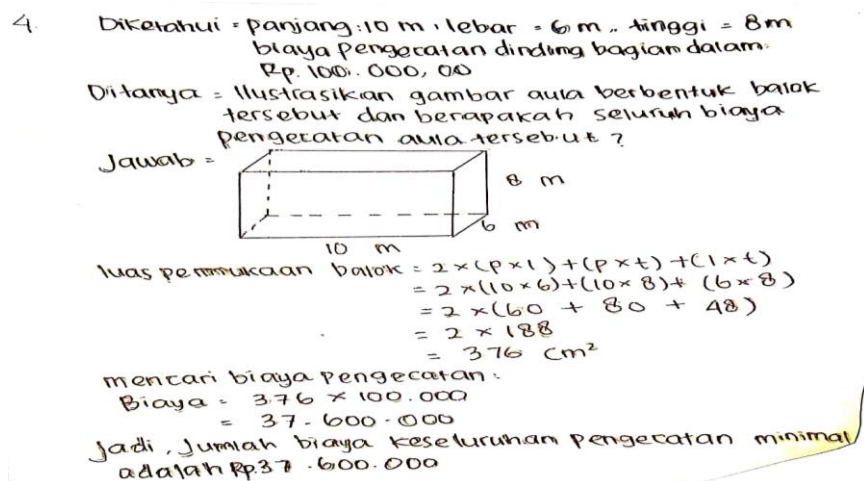 4. Diketahui = panjang : 10 m, lebar = 6 m, tinggi = 8 m
biaya pengecatan dinding bagian dalam:
Rp. 100.000,00
Ditanya = Ilustrasikan gambar aula berbentuk balok
tersebut dan berapakah seluruh biaya
pengecatan aula tersebut ?
Jawab =
8 m
6 m
10 m
luas permukaan balok = 2 × (p × l) + (p × t) + (l × t)
= 2 × (10 × 6) + (10 × 8) + (6 × 8)
= 2 × (60 + 80 + 48)
= 2 × 188
= 376 cm²
mencari biaya pengecatan :
Biaya = 376 × 100.000
= 37.600.000
Jadi, Jumlah biaya keseluruhan pengecatan minimal
adalah Rp.37.600.000